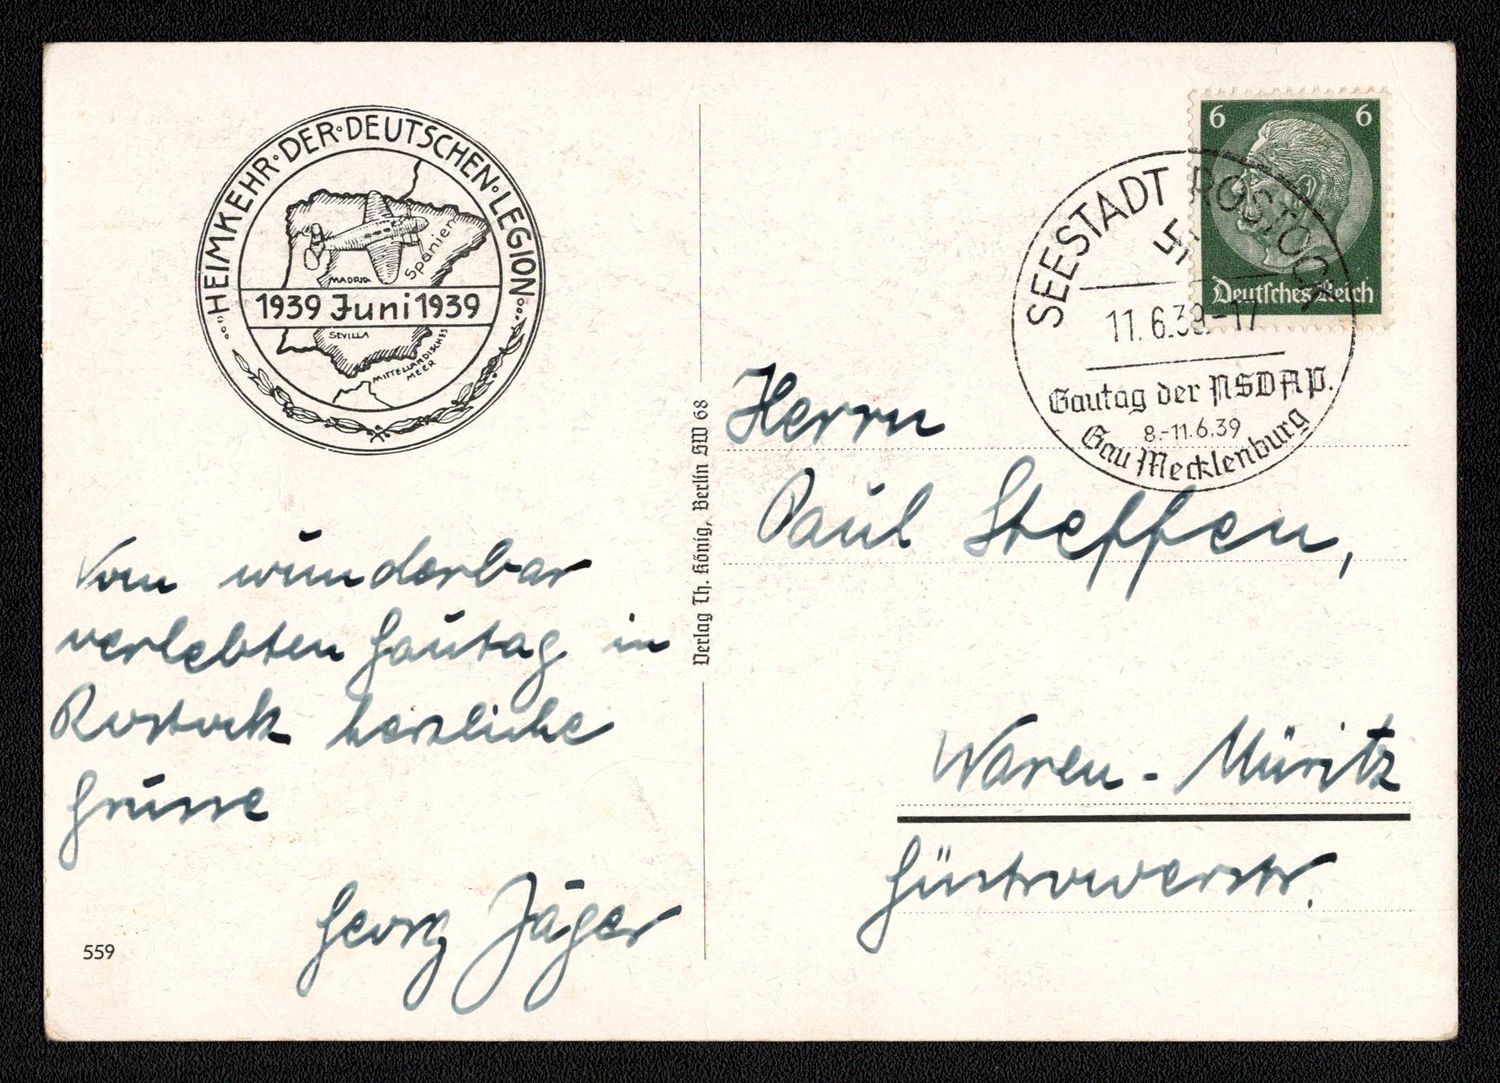 HEIMKEHR · DER · DEUTSCHEN · LEGION
Spanien
MADRID
1939 Juni 1939
SEVILLA
MITTELLÄNDISCHES
MEER
Vom wunderbar
verlebten Gautag in
Rostock herzliche
Grüsse
Georg Jäger
559
Verlag Th. König, Berlin SW 68
6 6
Deutsches Reich
SEESTADT ROSTOCK
11.6.39.-17
Gautag der NSDAP.
8.-11.6.39
Gau Mecklenburg
Herrn
Paul Steffen,
Waren - Müritz
Güstrowerstr.